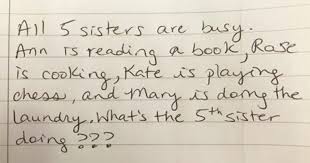 All 5 sisters are busy.
Ann is reading a book, Rose
is cooking, Kate is playing
chess, and Mary is doing the
laundry. What's the 5th sister
doing ???